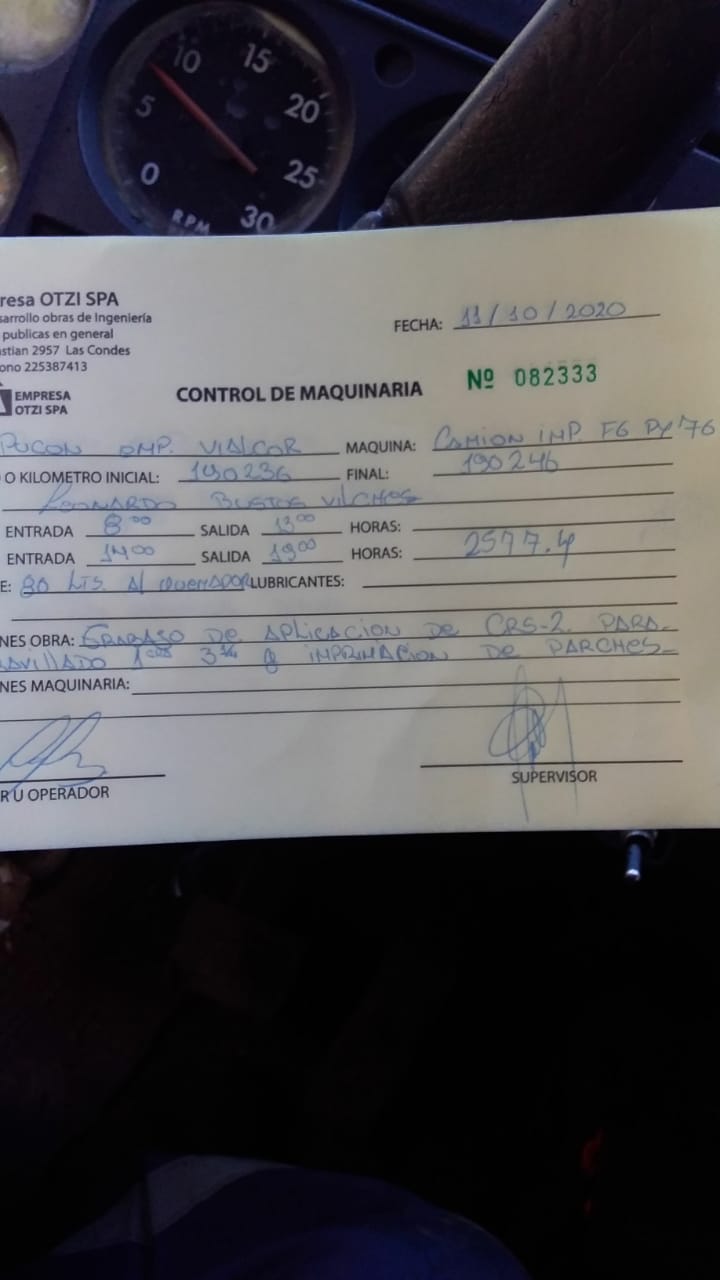 10 15
5 20
0 25
RPM 30
resa OTZI SPA
sarrollo obras de Ingeniería
publicas en general
stian 2957 Las Condes
ono 225387413
FECHA: 11/10/2020
EMPRESA
OTZI SPA
CONTROL DE MAQUINARIA
Nº 082333
PUCON EMP. VIALCOR MAQUINA: CAMION IMP. FG PY 76
O KILOMETRO INICIAL: 190236 FINAL: 190246
LEONARDO BUSTOS VILCHES
ENTRADA 8 00 SALIDA 13 00 HORAS:
ENTRADA 14 00 SALIDA 19 00 HORAS: 2577.4
E: 80 LTS. Al QUEMADOR LUBRICANTES:
NES OBRA: DE APLICACION DE CRS-2 PARA
GRAVILLADO IMPRIMACION DE PARCHES
NES MAQUINARIA:
R U OPERADOR
SUPERVISOR